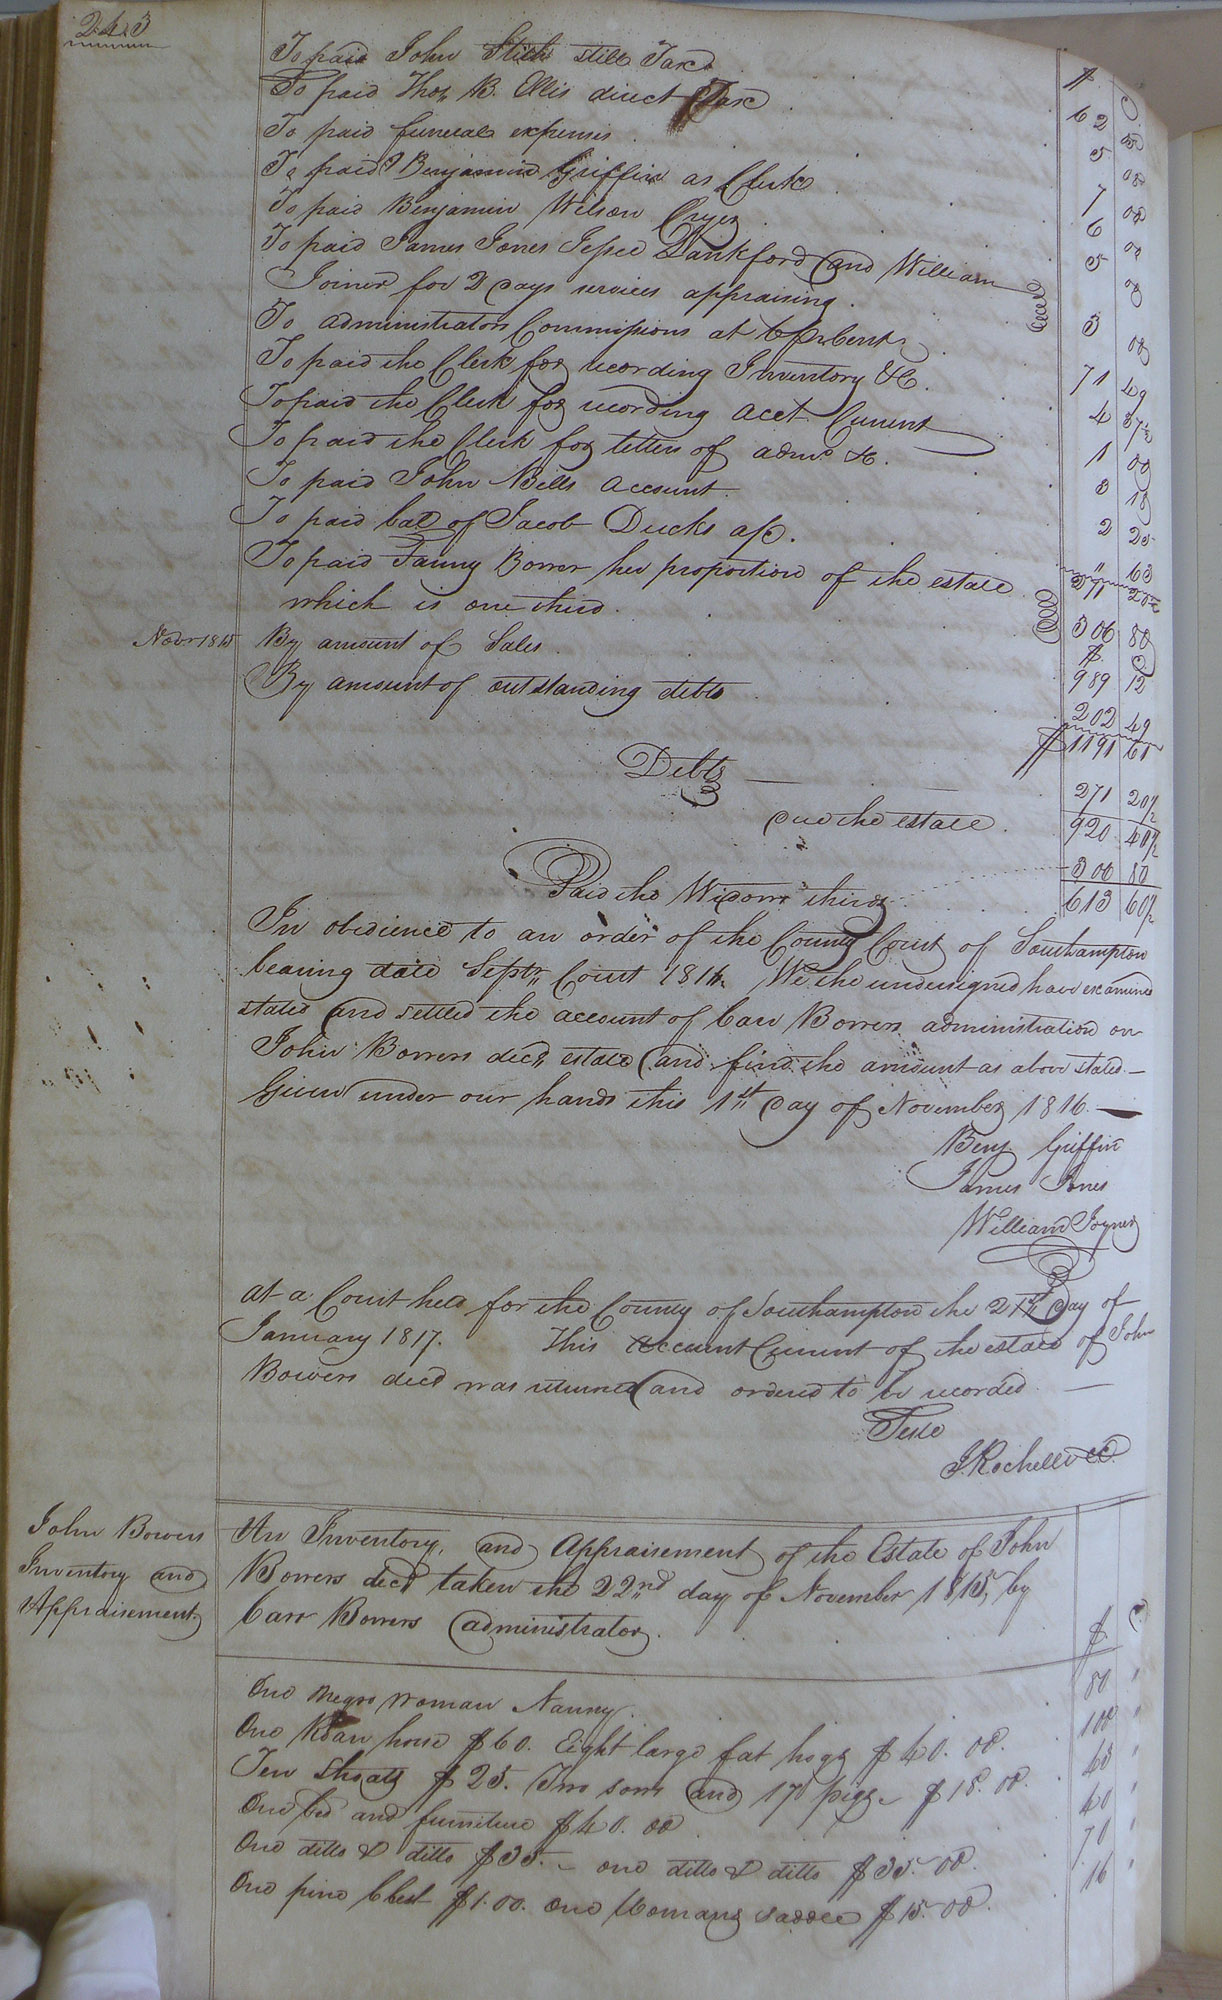 243
To paid John Stith still Tax
To paid Thos. B. Ellis direct Tax
To paid funeral expenses
To paid Benjamin Griffin as Clerk
To paid Benjamin Wilson Cryer
To paid James Jones Jessee Lankford and William
Joiner for 2 days services appraising.
To administrators Commissions at 6 pr Cent
To paid the Clerk for recording Inventory &C.
To paid the Clerk for recording acct Current
To paid the Clerk for letters of admn. &c.
To paid John Bells account
To paid bal of Jacob Ducks a/c.
To paid Fanny Bowers her proportion of the estate
which is one third. 306 80
Novr 1815 By amount of Sales. $ 989 12
By amount of outstanding debts 202 49
$ 1191 61
Debts — 271 20½
due the estate. 920 40½
Paid the Widows thirds 306 80
613 60½
In obedience to an order of the County Court of Southampton
bearing date Septr. Court 1816. We the undersigned have examined
stated and settled the account of Carr Bowers administration on
John Bowers decd. estate and find the amount as above stated.—
Given under our hands this 1st day of November 1816. —
Benj. Griffin
James Jones
William Joyner
at a Court held for the County of Southampton the 21st day of
January 1817. This account Current of the estate of John
Bowers decd was returned and ordered to be recorded. —
Teste
J. Rochelle CC.
John Bowers
Inventory and
Appraisement
An Inventory, and Appraisement of the Estate of John
Bowers decd taken the 22nd day of November 1815, by
Carr Bowers administrator. $ C
One negro woman Nanny. 80 "
One Roan horse $60. Eight large fat hogs $40.00. 100 "
Ten Shoats $25. Two sows and 17 pigs $18.00. 43 "
One bed and furniture $40.00 40 "
One ditto & ditto $35.— one ditto & ditto $35.00. 70 "
One pine Chest $1.00. One Womans saddle $15.00. 16 "